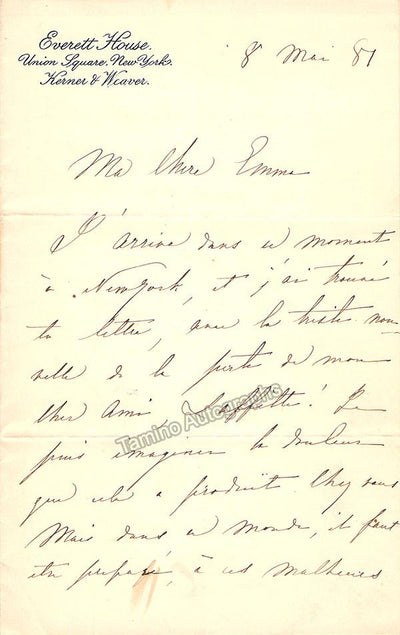 Everett House.
Union Square. New York.
Kerner & Weaver.
8 Mai 81
Ma chere Emma
J'arrive dans ce moment
à New york, et j'ai trouvé
ta lettre, avec la triste nou-
velle de la perte de mon
cher Ami ! Je
Tamino Autographs
puis imaginer la douleur
que cela a produit chez vous
Mais dans ce monde, il faut
etre preparé, à ces malheurs